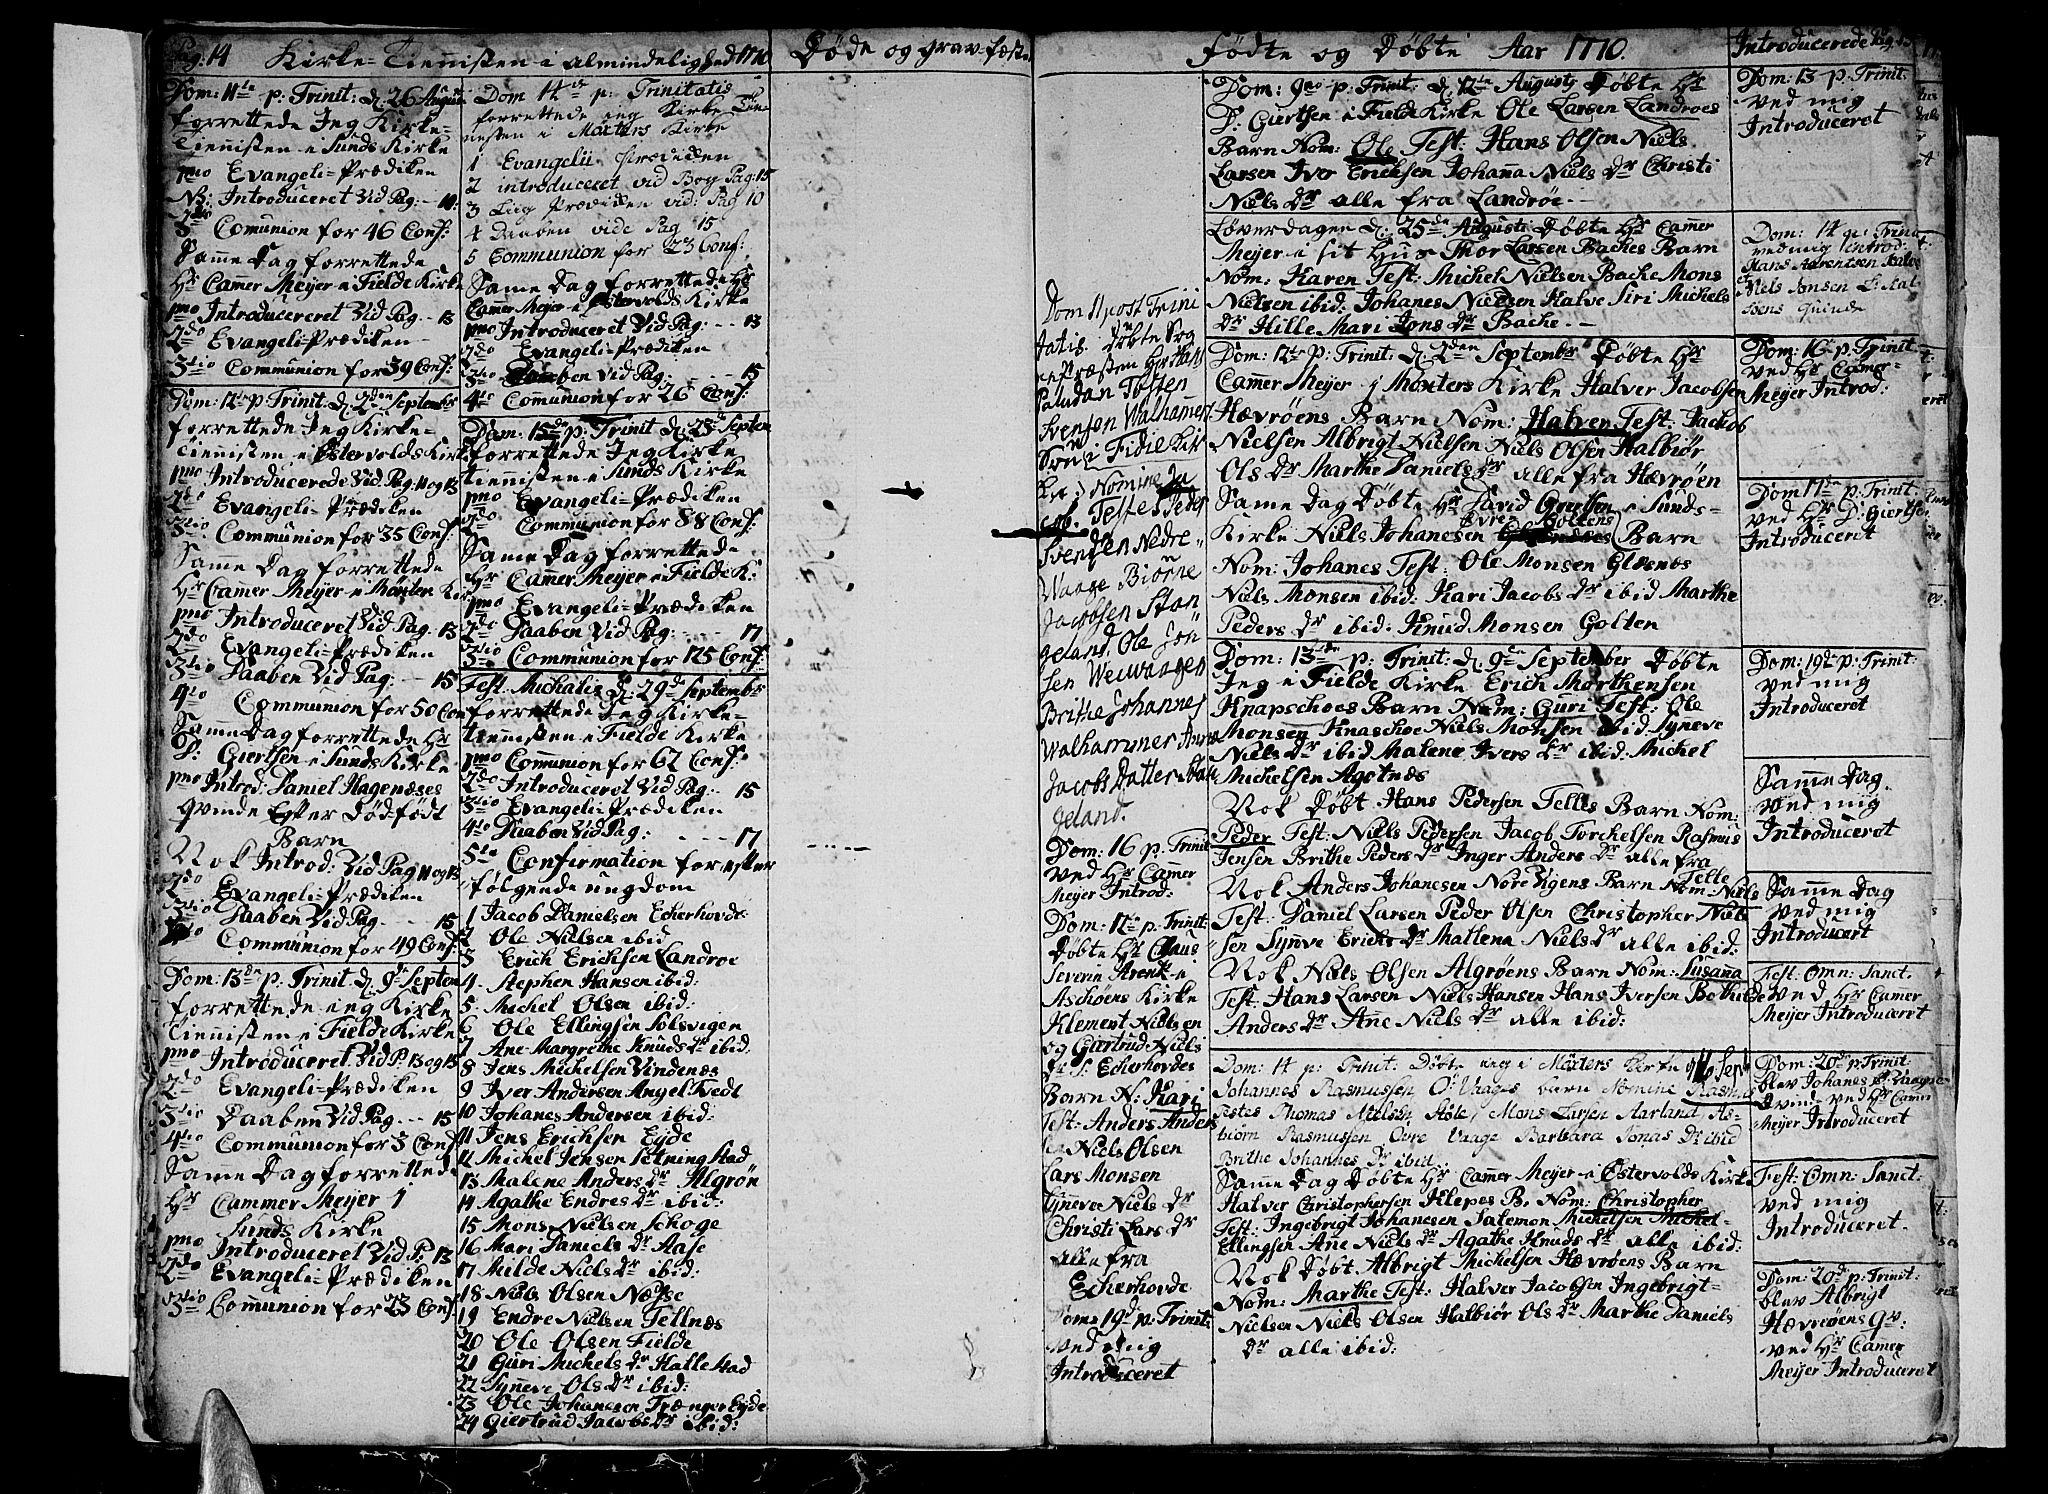 Pag: 14 Kirke-Tienisten i almindelighed 1770
Dom: 11te p: Trinit: d: 26 Augusti
forrettede Jeg Kirke-
Tienisten i Sunds Kirke
1mo Evangeli-Prædiken
N: Introduceret Vid Pag: -
3 Comunion for 46 Conf:
Same Dag forrettede
Hr Camer Meijer i Fielde Kirke
1mo Introducereret Vid Pag - 13
2do Evangeli-Prædiken
3tio Communion for 39 Conf:
Dom: 12te p Trinit: d: 2den Septembr
forrettede Jeg Kirke-
Tienisten i Østervolds Kirke
1mo Introducerede Vid Pag: 11 og 13
2do Evangeli-Prædiken
3tio Comunion for 35 Conf:
Same Dag forrettede
Hr Camer Meijer i Møster Kir:
1mo Introduceret Vid Pag. 13
2do Evangeli-Prædiken
3tio Daaben Vid Pag: - 15
4to Communion for 50 Con
Same Dag forrettede Hr
D: Giertsen i Sunds Kirke
1mo Introd: Daniel Hagenæses
Qvinde Efter Død-født
Barn
Nok Introd: Vid Pag 11 og 13
2do Evangeli-Prædiken
3tio Daaben Vid Pag - 15
4to Communion for 49 Conf:
Dom: 13de p. Trinit d: 9de Septem
forrettede Jeg Kirke
Tienisten i Fielde Kirke
1mo Introduceret Vid P: 13 og 15
2do Evangeli-Prædiken
3tio Daaben Vid Pag - 15
4to Communion for 3 Conf
Same Dag forrettede
Hr Cammer Meijer i
Sunds Kirke
1mo Introduceret Vid P: 13
2do Evangeli-Prædiken
3tio Comunion for 23 Conf
Dom 14de p: Trinitatis
forrettede Jeg Kirke Tie-
nesten i Møsters Kirke
1 Evangelii Prædiken
2 introduceret vid Bog Pag: 15
3 Liig Prædiken vid: Pag 10
4 Daaben vide Pag 15
5 Communion for 23 Conf:
Same Dag forrettede Hr
Camer Meijer i Østervolds Kirke
1mo Introduceret Vid Pag: - - 13
2do Evangeli-Prædiken
3tio Daaben Vid Pag: - - 15
4to Comunion for 26 Conf:
Dom: 15de p: Trinit d: 23de Septem
forrettede Jeg Kirke
tiennisten i Sunds Kirke
1mo Evangeli-Prædiken
2do Communion for 88 Conf:
Same Dag forrettede
Hr Camer Meijer i Fielde K:
1mo Evangeli-Prædiken
2do Daaben Vid Pag: - - - 17
3tio Communion for 125 Conf:
Fest: Michalis d: 29de September
forrettede Jeg Kirke-
tiennisten i Fielde Kirke
1mo Communion for 62 Conf:
2do Introduceret Vid Pag: - 15
3tio Evangeli-Prædiken
4to Daaben Vid Pag: - - - 17
5te Confirmation for efter
følgende ungdom
1 Jacob Danielsen Echerhovde
2 Ole Nielsen ibid
3 Erich Erichsen Landroe
4 Stephen Hansen ibid:
5 Michel Olsen ibid:
6 Ole Ellingsen Solsvigen
7 Ane Margrethe Knuds dr ibid:
8 Jens Michelsen Vindenæs
9 Iver Andersen Angel Tvedt
10 Johanes Andersen ibid:
11 Jens Erichsen Eyde
12 Michel Jensen Sætning stad
13 Malene Anders dr Algrøn
14 Agathe Endres dr ibid:
15 Mons Nielsen Schoge
16 Mari Daniels dr Aase
17 Milde Niels dr ibid:
18 Niels Olsen Nætse
19 Endre Nielsen Tellnæs
20 Ole Olsen Fielde
21 Guri Michels dr Halle stad
22 Synneve Ols dr ibid:
23 Ole Johanesen Trænger Eyde
24 Giertrud Jacobs dr ibid:
Døde og grav-fæste
Fødte og Døbte Aar 1770.
Dom 11 post Trini
tatis døbte Sog
nepræsten Hr
Paludan
Svensen Walhamers
Søn i Fielde Kir
ke: Nomine Ja
cob. Testes Peder
Svensen Nedre-
Waage Biørne
Jacobsen Stan
geland, Ole Jon
sen Wewangen
Brithe Johannes
Walhammer Anna
Jacobs Datter Stan
geland.
Dom: 16 p: Trinit
ved Hr Camer
Meijer Introd:
Dom: 12 p: Trinit:
Døbte Hr Claus
Severin Arent i
Aschøens Kirke
Klement Nielsen
og Giertrud Niels
dr S: Echerhovdes
Barn N: Kari
Test: Anders Anders
en Niels Olsen
Lars Monsen
Synneve Niels dr
Christi Lars dr
alle fra
Echerhovde
Dom: 19de p: Trinit:
ved mig
Introduceret
Dom: 9no p: Trinit. d: 12te Augusti Døbte Hr
D: Giertsen i Fielde Kirke Ole Larsen Landroes
Barn Nom: Ole Test: Hans Olsen Niels
Larsen Iver Erichsen Johana Niels dr Christi
Niels dr alle fra Landrøe.-
Løverdagen d: 25de Augusti Døbte Hr Camer
Meijer i sit Hus Thor Larsen Baches Barn
Nom: Karen Test: Michel Nielsen Bache Mons
Nielsen ibid: Johanes Nielsen Halve Siri Michels
dr Hille Mari Jons dr Bache.-
Dom: 12te p: Trinit: d: 2den Septembr Døbte Hr
Camer Meijer i Mønters Kirke Halver Jacobsen
Hævrøens Barn Nom: Halver Test: Jackob
Nielsen Albrigt Nielsen Niels Olsen Halbiør
Ols dr Marthe Daniels dr alle fra Hævrøen
Same Dag Døbte Hr David Giertsen i Sunds-
Kirke Niels Johanesen Øvre Goltens Barn
Nom: Johanes Test: Ole Monsen Glæsnæs
Niels Monsen ibid: Kari Jacobs dr ibid Marthe
Peders dr ibid: Knud Monsen Golten
Dom: 13de p: Trinit: d: 9de September Døbte
Jeg i Fielde Kirke Erich Morthensen
Knapschoes Barn Nom: Guri Test: Ole
Monsen Knapschoe Niels Monsen ibid Syneve
Niels dr ibid Malene Ivers dr ibid: Michel
Michelsen Agotnæs
Nok Døbt Hans Pedersen Telles Barn Nom:
Peder Test: Niels Pedersen Jacob Torchelsen Rasmus
Jensen Brithe Peders dr Inger Anders dr alle fra
Telle
Nok Anders Johanesen Nore Vigens Barn Nom: Niels
Test: Daniel Larsen Peder Olsen Christopher Niel
sen Synve Erichs dr Mallena Niels dr alle ibid:
Nok Niels Olsen Algrøens Barn Nom: Susana
Test: Hans Larsen Niels Hansen Hans Iversen Bothilde
Anders dr Ane Niels dr alle ibid:
Dom: 14 p: Trinit: Døbte Jeg i Møsters Kirke 16 Sept
Johannes Rasmussen Ø: Vaages barn Nomine Rasmus
Testes Thomas Nielsen Aase, Mons Larsen Aarland As-
biørn Rasmussen Øvre Vaage Barbara Jonas dr ibid
Brithe Johannes dr ibid.
Same Dag Døbte Hr Camer Meijer i Østervolds Kirke
Halver Christophersen Klepes B. Nom: Christopher
Test: Ingebrigt Johanesen Salemon Michelsen Michel
Ellingsen Ane Niels dr Agathe Knuds dr alle ibid:
Nok Døbt Albrigt Michelsen Hævrøens Barn
Nom: Marthe Test: Halver Jacobsen Ingebrigt
Nielsen Niels Olsen Halbiør Ols dr Marthe Daniels
dr alle ibid:
Introducerede Pag: 15
Dom: 13 p: Trinit:
ved mig
Introduceret
Dom: 14 p: Trinit
ved mig Introd:
Hans Arentsen
Niels Jonsen
Qvinde
Dom: 16 p: Trinit
ved Hr Camer-
Meijer Introd:
Dom 17de p: Trinit:
ved Hr D: Giertsen
Introduceret
Dom: 19de p: Trinit:
ved mig
Introduceret
Same Dag
ved mig
Introduceret
Same Dag
ved mig
Introducert
Fest: Omn: Sanct.
ved Hr Camer
Meijer Introduceret
Dom: 20de p: Trinit:
blev Johanes Ø: Vaages
Qvinde ved Hr Camer
Meijer Introduceret
Fest: Omn: Sanct:
ved mig
Introduceret.
Dom: 20de p: Trinit:
blev Albrigt
Hævrøens Qv:
ved Hr Camer
Meijer Introduceret